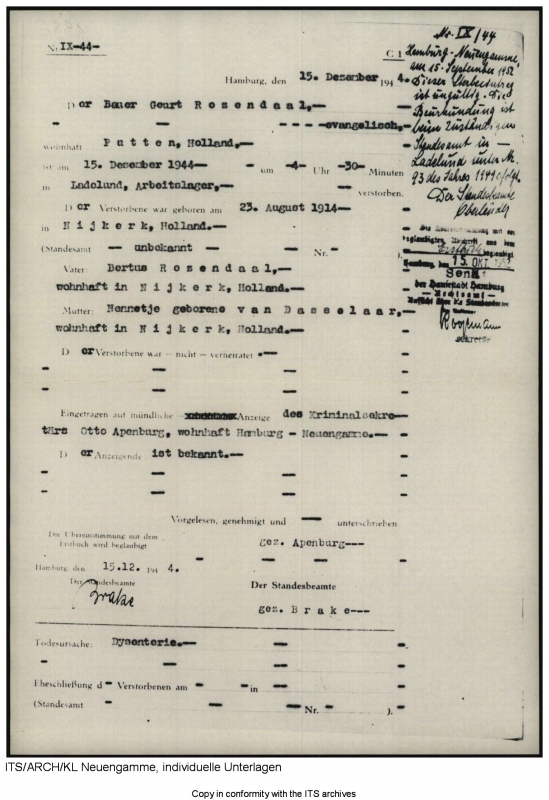 Nr. IX-44-
C 1
Hamburg, den 15. Dezember 1944.
Der Bauer Geurt Rosendaal,-
- - - - - -evangelisch,-
wohnhaft Putten, Holland.-
ist am 15. Dezember 1944- um -4- Uhr -30- Minuten
in Ladelund, Arbeitslager,- verstorben.
Der Verstorbene war geboren am 23. August 1914-
in Nijkerk, Holland.-
(Standesamt - unbekannt - Nr. - ).
Vater: Bertus Rosendaal,-
wohnhaft in Nijkerk, Holland.-
Mutter: Nennetje geborene van Dasselaar,-
wohnhaft in Nijkerk, Holland.-
Der Verstorbene war - nicht - verheiratet .-
Eingetragen auf mündliche - Anzeige des Kriminalsekre-
tärs Otto Apenburg, wohnhaft Hamburg - Neuengamme.-
Der Anzeigende ist bekannt.-
Vorgelesen, genehmigt und - unterschrieben
Die Übereinstimmung mit dem
Erstbuch wird beglaubigt
gez. Apenburg---
Hamburg, den 15.12. 1944.
Der Standesbeamte
Brake
Der Standesbeamte
gez. Brake---
Todesursache: Dysenterie.-
Eheschließung d- Verstorbenen am - - in -
(Standesamt - - Nr. - ).
Nr. IX/44
Hamburg-Neuengamme,
am 15. September 1952
Dieser Sterbeeintrag
ist ungültig. Die
Beurkundung ist
beim zuständigen
Standesamt in -
Ladelund unter Nr.
93 des Jahres 1944 erfolgt.
Der Standesbeamte
Hamburg, den 15. OKT.
Senat
der Hansestadt Hamburg
- Rechtsamt -
Aufsicht über die Standesämter
ITS/ARCH/KL Neuengamme, individuelle Unterlagen
Copy in conformity with the ITS archives